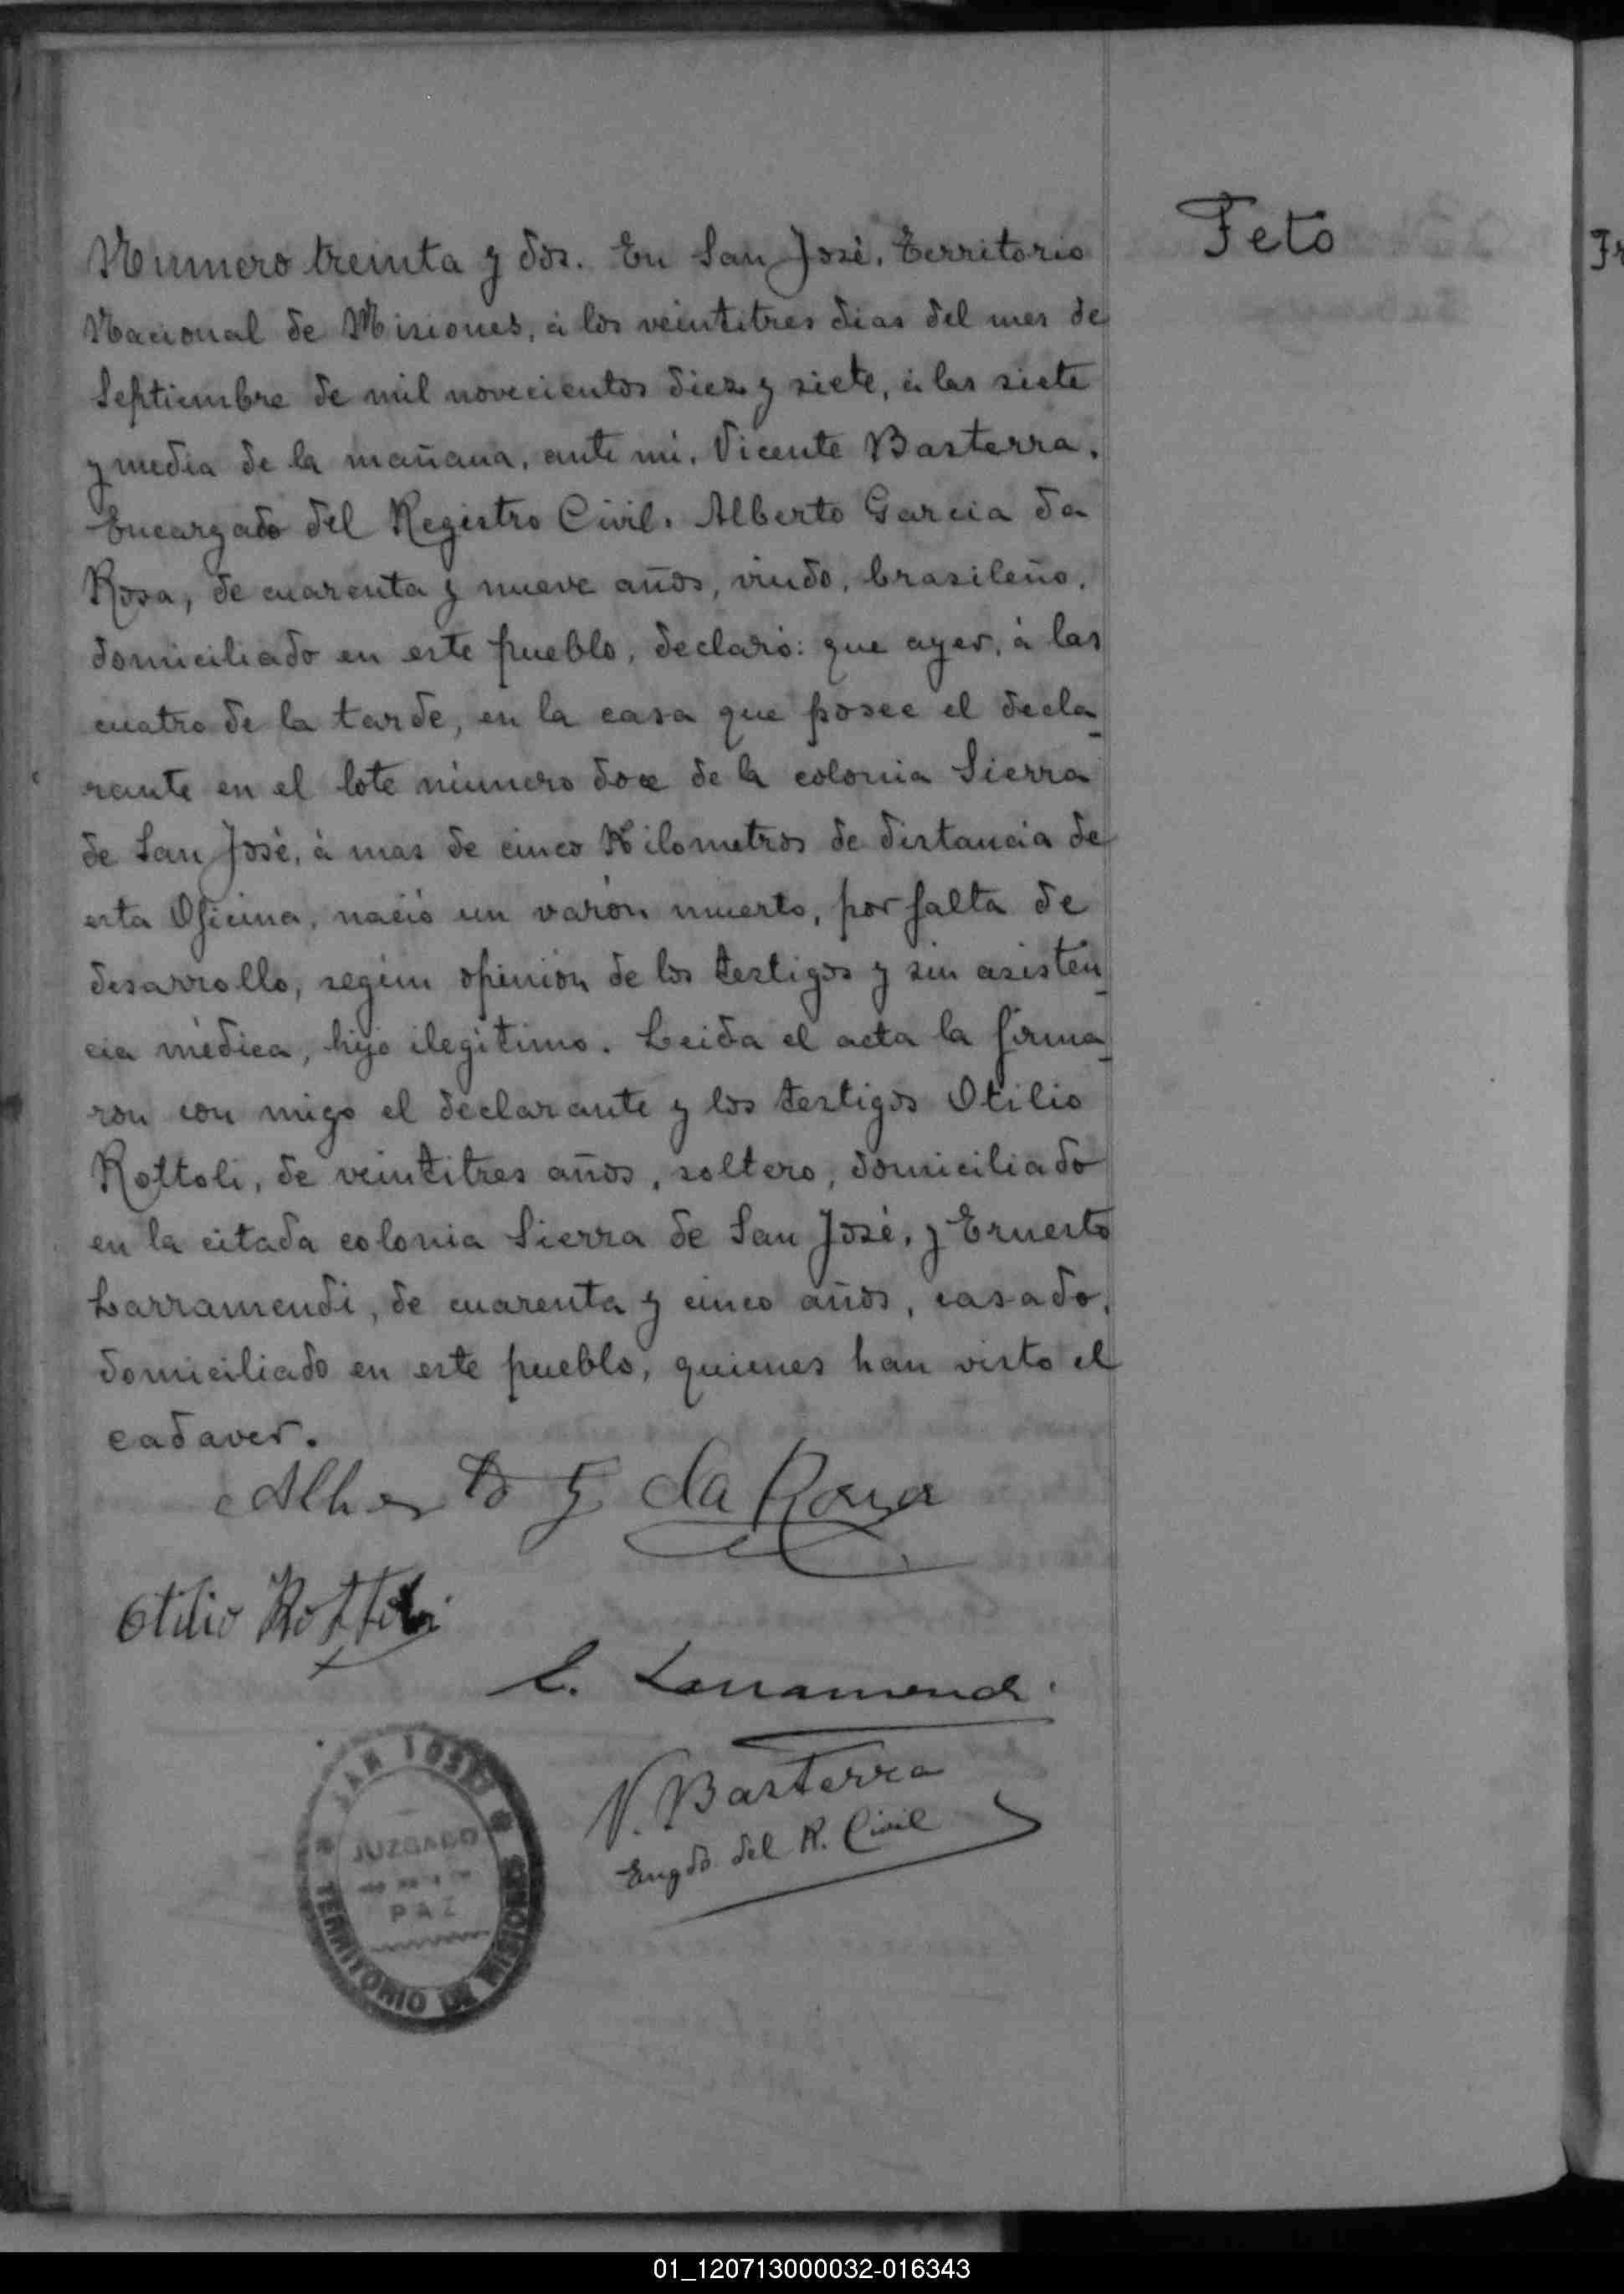 Feto
Numero treinta y dos. En San José, Territorio
Nacional de Misiones, á los veintitres dias del mes de
Septiembre de mil novecientos diez y siete, á las siete
y media de la mañana, ante mi, Vicente Basterra,
Encargado del Registro Civil, Alberto Garcia da
Rosa, de cuarenta y nueve años, viudo, brasileño,
domiciliado en este pueblo, declaró: que ayer, á las
cuatro de la tarde, en la casa que posee el decla-
rante en el lote número doce de la colonia Sierra
de San José, á mas de cinco Kilometros de distancia de
esta Oficina, nació un varón muerto, por falta de
desarrollo, según opinión de los testigos y sin asisten-
cia médica, hijo ilegítimo. Leida el acta la firma-
ron con migo el declarante y los testigos Otilio
Rottoli, de veintitres años, soltero, domiciliado
en la citada colonia Sierra de San José, y Ernesto
Larramendi, de cuarenta y cinco años, casado,
domiciliado en este pueblo, quienes han visto el
cadaver.
Alberto G. da Rosa
Otilio Rottoli
E. Larramendi
V. Basterra
Engdo del R. Civil
SAN JOSÉ
JUZGADO
DE
PAZ
TERRITORIO DE MISIONES
01_120713000032-016343